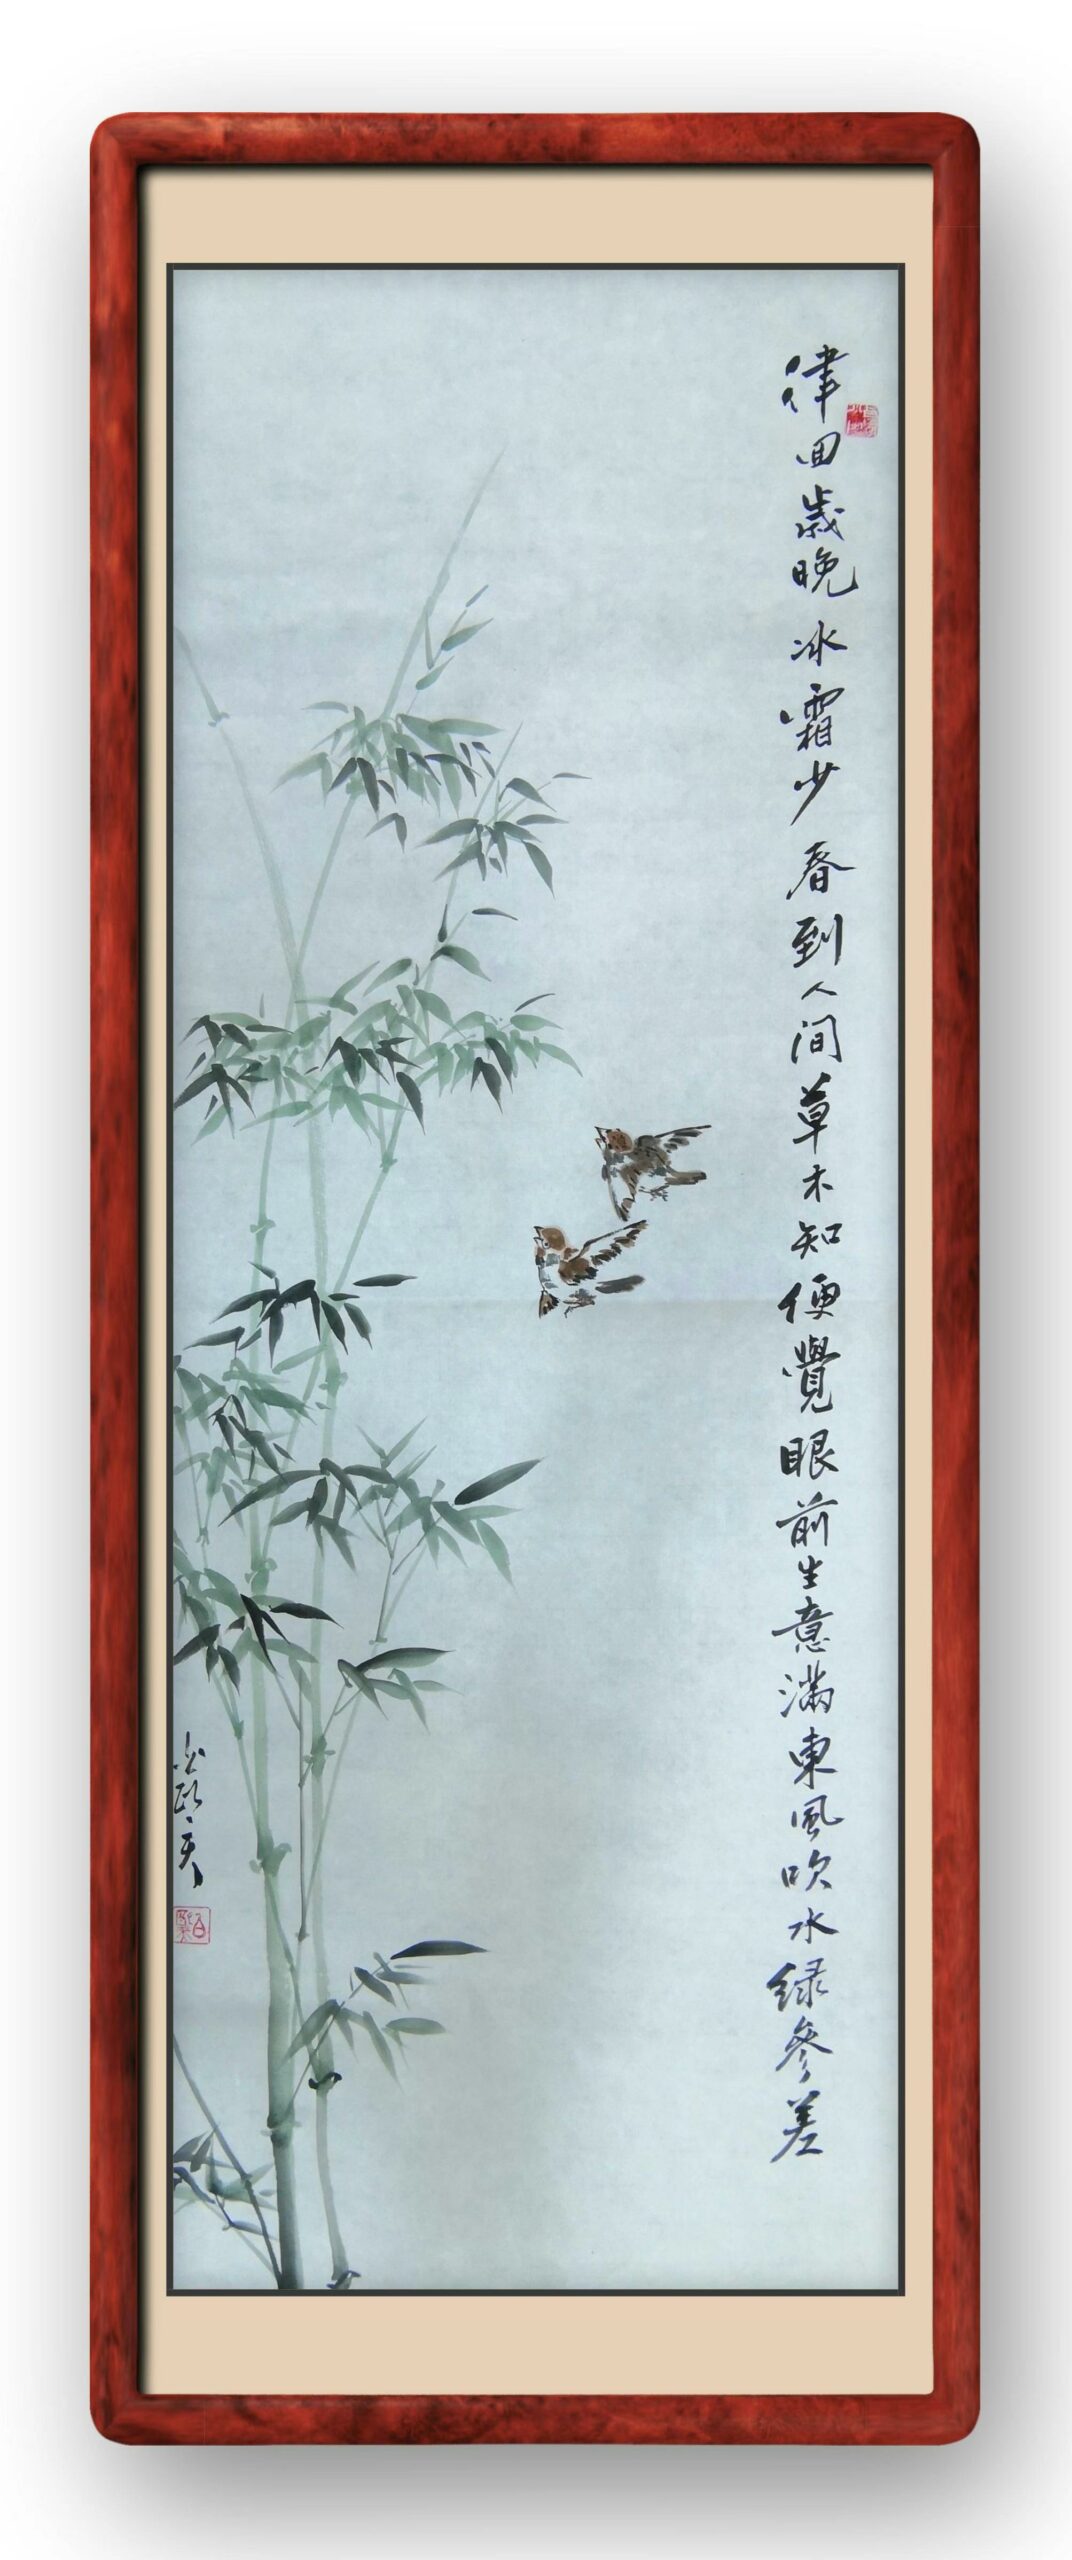 律回歲晚冰霜少春到人間草木知便覺眼前生意滿東風吹水綠參差